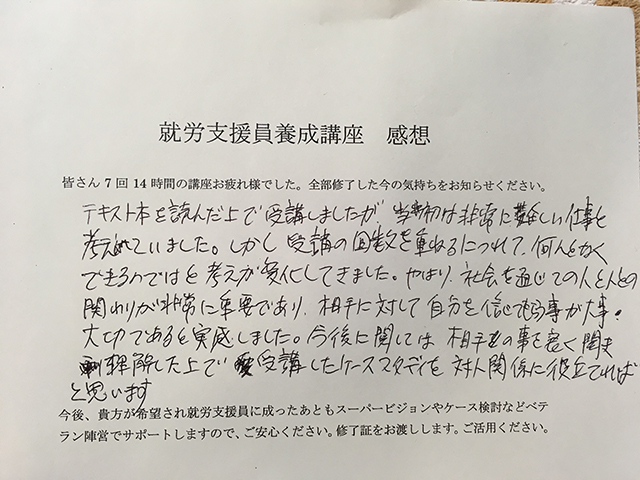 就労支援員養成講座　感想
皆さん７回 14 時間の講座お疲れ様でした。全部修了した今の気持ちをお知らせください。
テキスト本を読んだ上で受講しましたが、当初は非常に難しい仕事と
考えていました。しかし受講の回数を重ねるにつれて、何んとなく
できるのではと考えが変化してきました。やはり、社会を通じての人と人との
関わりが非常に重要であり、相手に対して自分を信じてもらう事が大事・
大切であると実感しました。今後に関しては相手の事を良く聞き
理解した上で受講したケーススタディを対人関係に役立てれば
と思います
今後、貴方が希望され就労支援員に成ったあともスーパービジョンやケース検討などベテ
ラン陣営でサポートしますので、ご安心ください。修了証をお渡しします。ご活用ください。